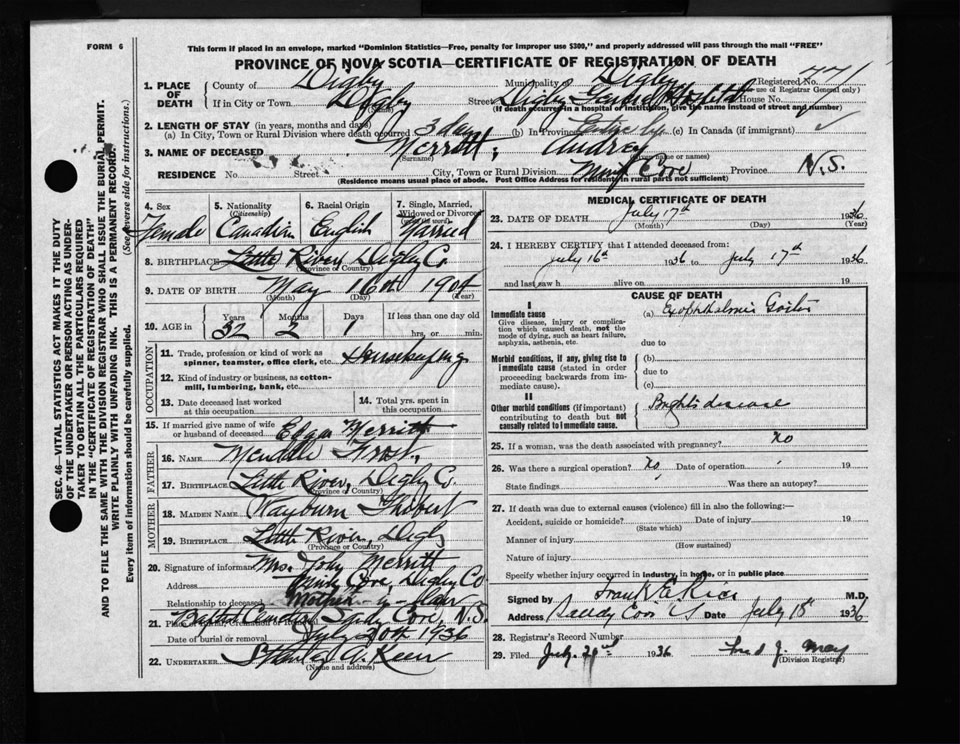 FORM 6
This form if placed in an envelope, marked "Dominion Statistics—Free, penalty for improper use $300," and properly addressed will pass through the mail "FREE"
PROVINCE OF NOVA SCOTIA—CERTIFICATE OF REGISTRATION OF DEATH
1. PLACE OF DEATH
County of Digby Municipality of Digby Registered No. 771
(For use of Registrar General only)
If in City or Town Digby Street Digby General Hospital House No.
(If death occurred in a hospital or institution, give the name instead of street and number)
2. LENGTH OF STAY (in years, months and days)
(a) In City, Town or Rural Division where death occurred 3 days (b) In Province Entire Life (c) In Canada (if immigrant) ✓
3. NAME OF DECEASED Merritt, Audrey
(Surname) (Given name or names)
RESIDENCE No. Street City, Town or Rural Division Mink Cove Province N.S.
(Residence means usual place of abode. Post Office Address for residents in rural parts not sufficient)
4. Sex Female
5. Nationality (Citizenship) Canadian
6. Racial Origin English
7. Single, Married, Widowed or Divorced (Write the word) Married
8. BIRTHPLACE Little River, Digby Co.
(Province or Country)
9. DATE OF BIRTH May 16th 1904
(Month) (Day) (Year)
10. AGE in Years Months Days If less than one day old
32 2 1 hrs. or min.
OCCUPATION
11. Trade, profession or kind of work as spinner, teamster, office clerk, etc. Housekeeping
12. Kind of industry or business, as cotton-mill, lumbering, bank, etc.
13. Date deceased last worked at this occupation
14. Total yrs. spent in this occupation
15. If married give name of wife or husband of deceased Edgar Merritt
FATHER
16. NAME Frost
17. BIRTHPLACE Little River, Digby Co.
(Province or Country)
MOTHER
18. MAIDEN NAME
19. BIRTHPLACE Little River, Digby
(Province or Country)
20. Signature of informant Mrs. John Merritt
Address Mink Cove, Digby Co
Relationship to deceased Mother-in-law
21. Place of Burial, Cremation Baptist Cemetery Sandy Cove, N.S.
Date of burial or removal July 20th 1936
22. UNDERTAKER Stanley A. Keen
(Name and address)
MEDICAL CERTIFICATE OF DEATH
23. DATE OF DEATH July 17th 1936
(Month) (Day) (Year)
24. I HEREBY CERTIFY that I attended deceased from:
July 16th 1936 to July 17th 1936
and last saw h alive on 19
CAUSE OF DEATH
I
Immediate cause
Give disease, injury or complication which caused death, not the mode of dying, such as heart failure, asphyxia, asthenia, etc.
(a) Exophthalmic Goiter
due to
Morbid conditions, if any, giving rise to immediate cause (stated in order proceeding backwards from immediate cause).
(b)
due to
(c)
II
Other morbid conditions (if important) contributing to death but not causally related to immediate cause.
Brights disease
25. If a woman, was the death associated with pregnancy? no
26. Was there a surgical operation? No Date of operation 19
State findings Was there an autopsy?
27. If death was due to external causes (violence) fill in also the following:—
Accident, suicide or homicide? Date of injury 19
(State which)
Manner of injury
(How sustained)
Nature of injury
Specify whether injury occurred in industry, in home, or in public place
Signed by Frank E Rice M.D.
Address Sandy Cove N S Date July 18 1936
28. Registrar's Record Number
29. Filed July 1936 Fred J. May
(Division Registrar)
SEC. 46—VITAL STATISTICS ACT MAKES IT THE DUTY OF THE UNDERTAKER OR PERSON ACTING AS UNDERTAKER TO OBTAIN ALL THE PARTICULARS REQUIRED IN THE "CERTIFICATE OF REGISTRATION OF DEATH" AND TO FILE THE SAME WITH THE DIVISION REGISTRAR WHO SHALL ISSUE THE BURIAL PERMIT.
WRITE PLAINLY WITH UNFADING INK. THIS IS A PERMANENT RECORD.
Every item of information should be carefully supplied. (See reverse side for instructions.)